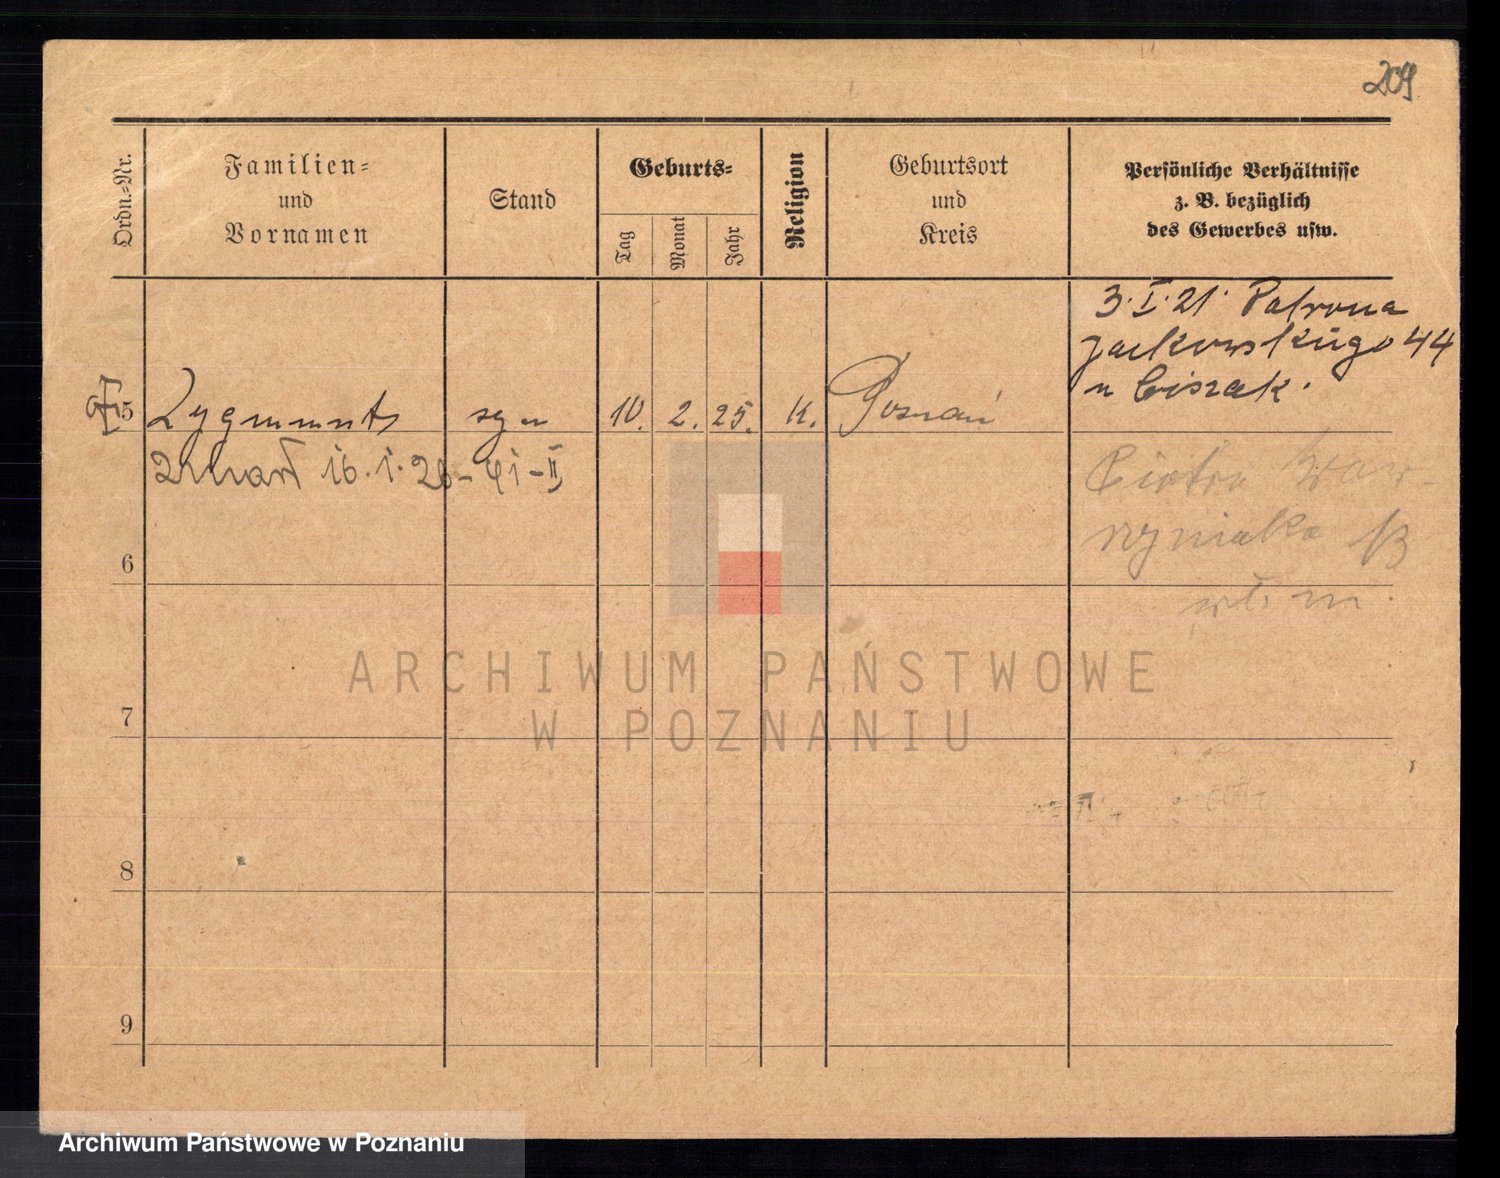 209
Ordn.-Nr.
Familien-
und
Vornamen
Stand
Geburts-
Tag
Monat
Jahr
Religion
Geburtsort
und
Kreis
Persönliche Verhältnisse
z. B. bezüglich
des Gewerbes usw.
3. I. 21. Patrona
Jackowskiego 44
u Ciszak.
5 Zygmunt syn 10. 2. 25. K. Poznań
zmarł 16. 1. 26 - 41 - II
Piotra Waw-
rzyniaka 13
6
7
8
9
ARCHIWUM PAŃSTWOWE
W POZNANIU
Archiwum Państwowe w Poznaniu